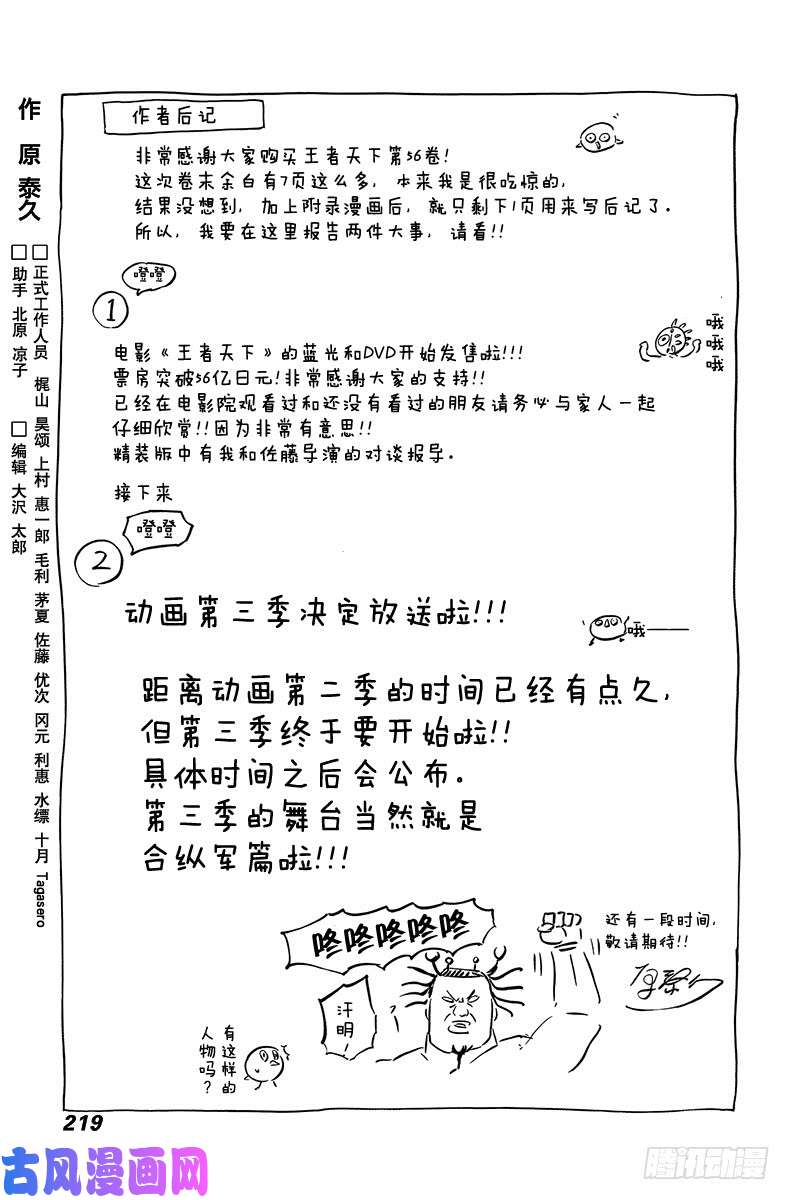 作者后记
非常感谢大家购买王者天下第56卷!
这次卷末余白有7页这么多, 本来我是很吃惊的,
结果没想到, 加上附录漫画后, 就只剩下1页用来写后记了.
所以, 我要在这里报告两件大事, 请看!!
噔噔
①
哦
哦
哦
电影《王者天下》的蓝光和DVD开始发售啦!!!
票房突破56亿日元!非常感谢大家的支持!!
已经在电影院观看过和还没有看过的朋友请务必与家人一起
仔细欣赏!!因为非常有意思!!
精装版中有我和佐藤导演的对谈报导.
接下来
噔噔
②
动画第三季决定放送啦!!!
哦——
距离动画第二季的时间已经有点久,
但第三季终于要开始啦!!
具体时间之后会公布.
第三季的舞台当然就是
合纵军篇啦!!!
咚咚咚咚咚
还有一段时间,
敬请期待!!
原泰久
汗明!
有这样的
人物吗?
作 原 泰久
□正式工作人员 梶山 昊颂 上村 惠一郎 毛利 茅夏 佐藤 优次 冈元 利惠 水缥 十月 Tagasero
□助手 北原 凉子 □编辑 大沢 太郎
219
古风漫画网
腾讯动漫